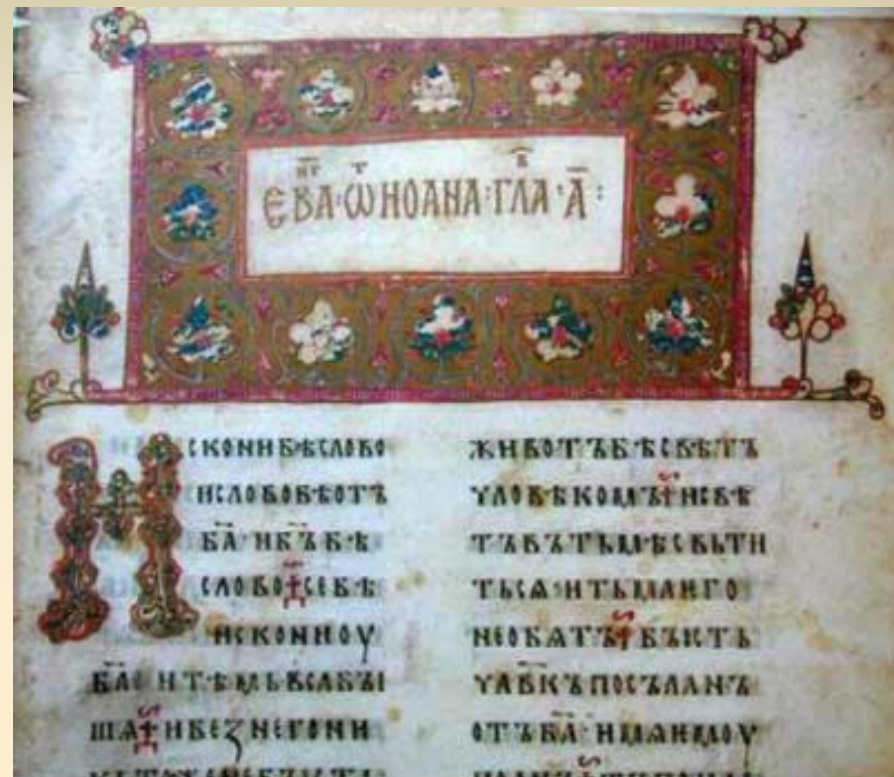 ЕВА҃НГ·Ѿ ИОАНА·ГЛАВ҃·А҃:
ИСКОНИБѢСЛОВО
ИСЛОВОБѢОТЪ
Б҃А·ИБ҃ЪБѢ
СЛОВОСЕБѢ
ИСКОНИОУ
Б҃А·ИТѢМЬВЬСАБЫ
ШѦИБЕЗНЕГОНИ
ЖИВОТЪБѢСВѢТЪ
ЧЛОВѢКОМЪИСВѢ
ТЪВЪТЬМѢСВЬТИ
ТЬСѦ·ИТЬМАѤГО
НЕОБѦТЪБЫСТЬ
ЧЛ҃ВКЪПОСЪЛАНЪ
ОТЪБ҃А·ИМѦѤМОУ